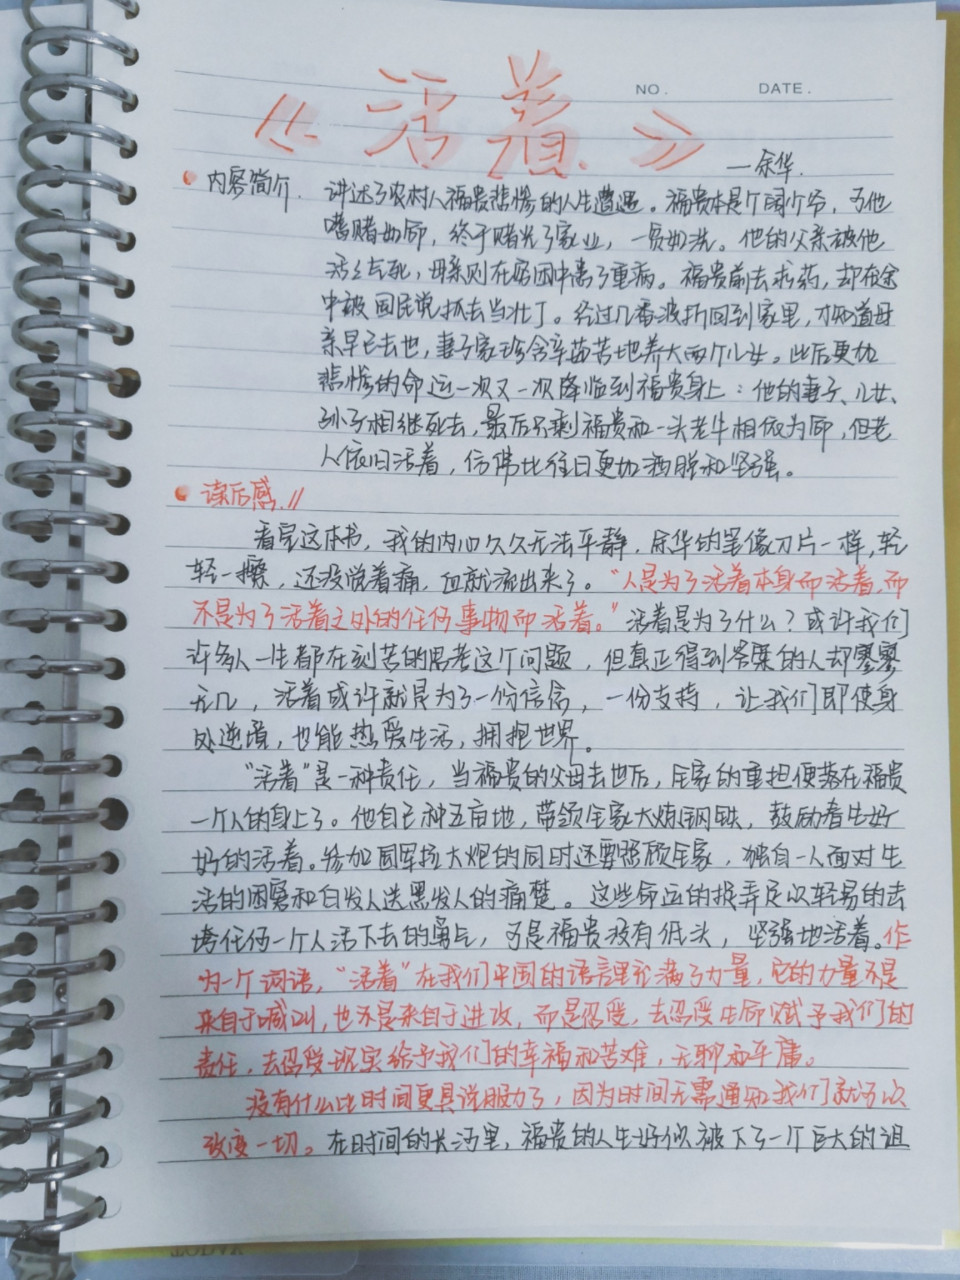 NO. DATE.
《活着》
—余华.
内容简介. 讲述了农村人福贵悲惨的人生遭遇。福贵本是个阔少爷,可他
嗜赌如命,终于赌光了家业,一贫如洗。他的父亲被他
活活气死,母亲则在穷困中患了重病。福贵前去求药,却在途
中被国民党抓去当壮丁。经过几番波折回到家里,才知道母
亲早已去世,妻子家珍含辛茹苦地养大两个儿女。此后更加
悲惨的命运一次又一次降临到福贵身上:他的妻子、儿女、
孙子相继死去,最后只剩福贵和一头老牛相依为命,但老
人依旧活着,仿佛比往日更加洒脱和坚强。
读后感.//
看完这本书,我的内心久久无法平静,余华的笔像刀片一样,轻
轻一擦,还没觉着痛,血就流出来了。"人是为了活着本身而活着,而
不是为了活着之外的任何事物而活着。"活着是为了什么?或许我们
许多人一生都在刻苦的思考这个问题,但真正得到答案的人却寥寥
无几,活着或许就是为了一份信念,一份支持,让我们即使身
处逆境,也能热爱生活,拥抱世界。
"活着"是一种责任,当福贵的父母去世后,全家的重担便落在福贵
一个人的身上了。他自己种五亩地,带领全家大炼钢铁,鼓励着生好
好的活着。参加国军拉大炮的同时还要照顾全家,独自一人面对生
活的困窘和白发人送黑发人的痛楚。这些命运的捉弄足以轻易的去
垮任何一个人活下去的勇气,可是福贵没有低头,坚强地活着。作
为一个词语,"活着"在我们中国的语言里充满了力量,它的力量不是
来自于喊叫,也不是来自于进攻,而是忍受,去忍受生命赋予我们的
责任,去忍受现实给予我们的幸福和苦难,无聊和平庸。
没有什么比时间更具说服力了,因为时间无需通知我们就可以
改变一切。在时间的长河里,福贵的人生好似被下了一个巨大的诅